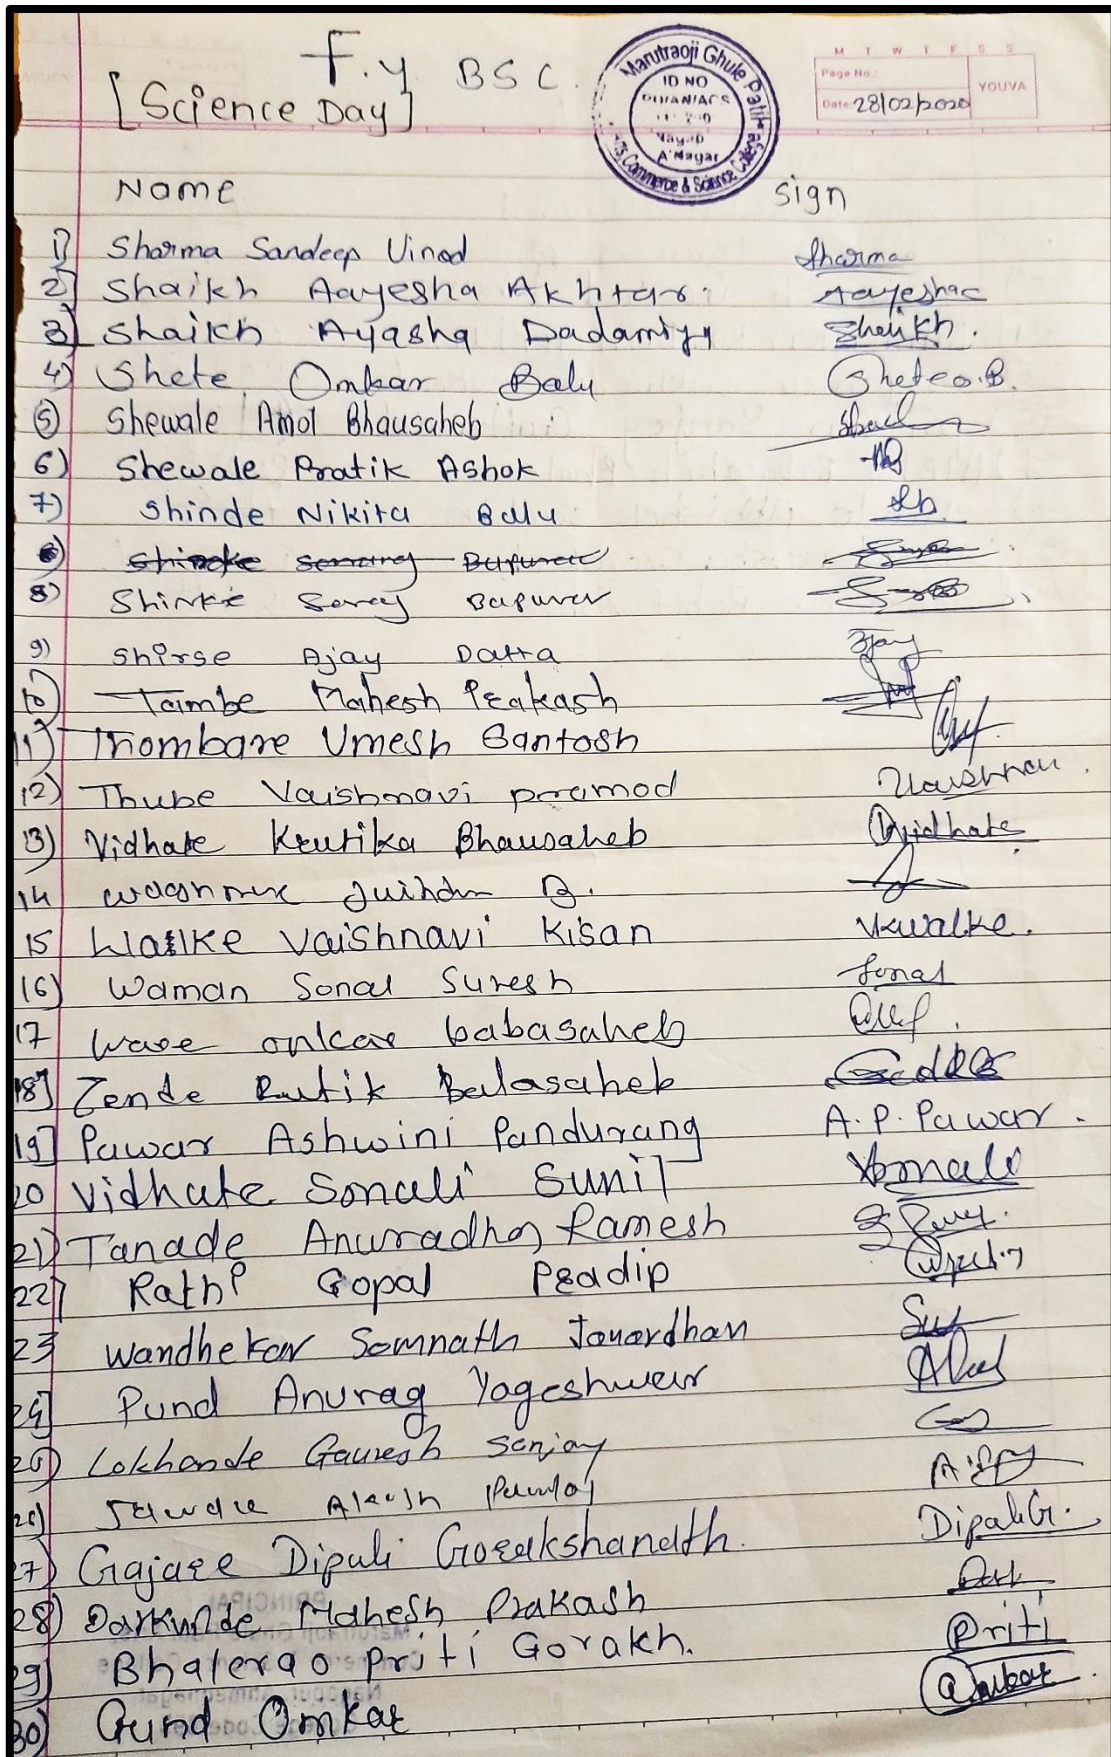 F.Y. BSC.
[Science Day]
Marutraoji Ghule Patil
ID NO
A'Nagar
Commerce & Science College
M T W T F S S
Page No.:
YOUVA
Date: 28/02/2020
Name Sign
1) Sharma Sandeep Vinod Sharma
2) Shaikh Aayesha Akhtar. Aayesha
3) Shaikh Ayasha Dadamiya Shaikh.
4) Shete Omkar Balu Shete O.B.
5) Shewale Amol Bhausaheb
6) Shewale Pratik Ashok
7) Shinde Nikita Balu
8)
8) Shinke Bapurav
9) Shirse Ajay Datta Ajay
10) Tambe Mahesh Prakash
11) Thombare Umesh Santosh
12) Thube Vaishnavi pramod Vaishnavi.
13) Vidhate Krutika Bhausaheb Vidhate
14 B.
15 Walke Vaishnavi Kisan Vkwalke.
16) Waman Sonal Suresh Sonal
17 Ware onkar babasaheb
18] Zende Rutik Balasaheb
19] Pawar Ashwini Pandurang A.P. Pawar.
20 Vidhate Sonali Sunil Sonali
21) Tanade Anuradha Ramesh
22] Rathi Gopal Pradip
23 Wandhekar Somnath Janardhan
24] Pund Anurag Yogeshwar
25) Lokhande Gauresh Sanjay
26) Akash
27) Gajare Dipali Gorakshanath. Dipali G.
28) Darkunde Mahesh Prakash
29) Bhalerao Priti Gorakh. Priti
30) Gund Omkar Omkar.